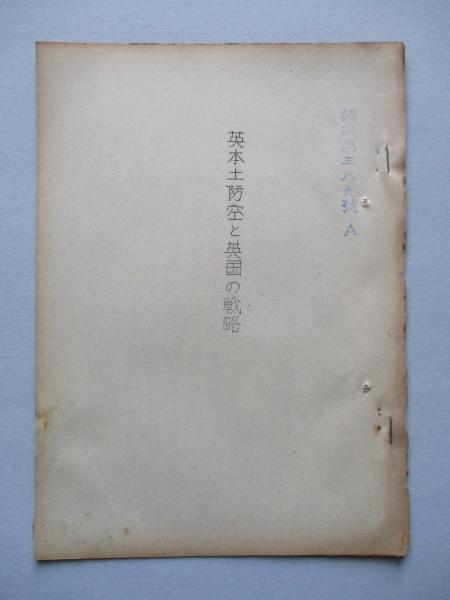 調研第三八九號 A
英本土防空と英国の戦略